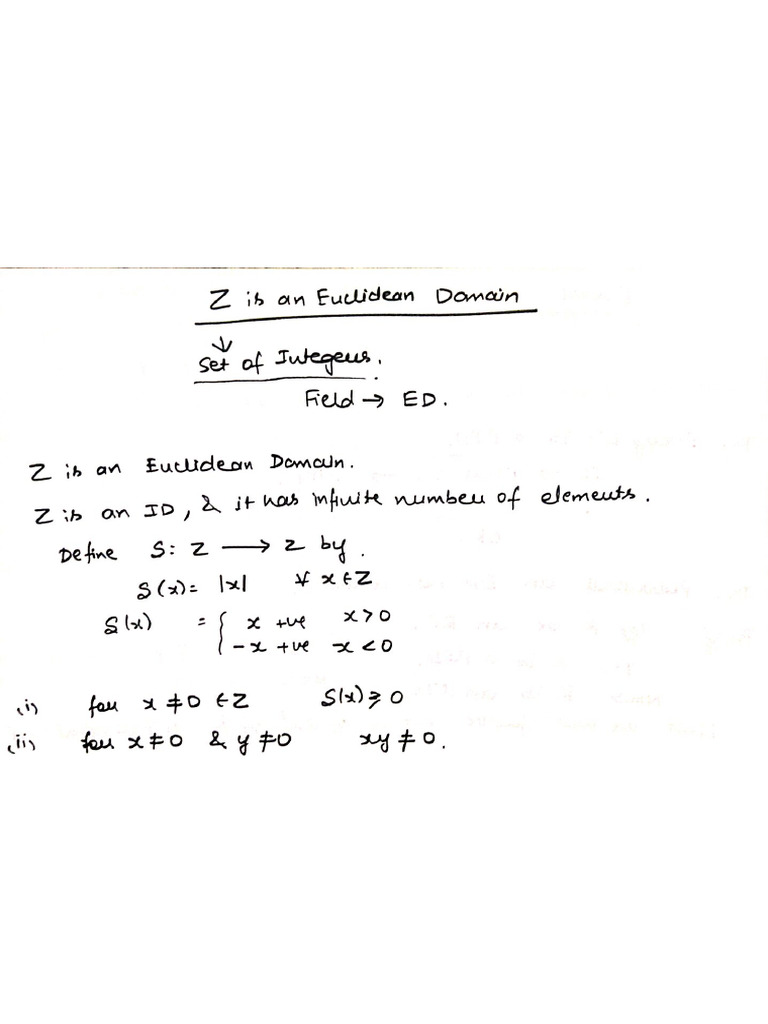 Z is an Euclidean Domain
↓
Set of Integers.
Field → ED.
Z is an Euclidean Domain.
Z is an ID, & it has infinite number of elements.
Define S: Z → Z by.
S(x) = |x| ∀ x ∈ Z
S(x) = { x +ve x > 0
-x +ve x < 0
(i) for x ≠ 0 ∈ Z S(x) ≥ 0
(ii) for x ≠ 0 & y ≠ 0 xy ≠ 0.